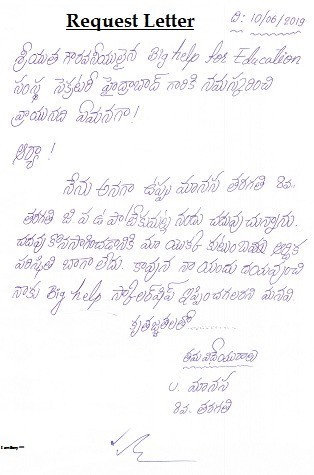 Request Letter
ది: 10/06/2019
శ్రీయుత గౌరవనీయులైన Big help for Education
సంస్థ సెక్రటరీ హైద్రాబాద్ గారికి నమస్కరించి
వ్రాయునది ఏమనగా!
ఆర్యా!
నేను అనగా ఉప్పు మానస తరగతి 8వ.
తరగతి జి ప ఉ నందు చదువు చున్నాను.
చదువు కొనసాగించడానికి మా యొక్క కుటుంబము ఆర్థిక
పరిస్థితి బాగా లేదు. కావున నా యందు దయవుంచి
నాకు Big help స్కాలర్‌షిప్ ఇప్పించగలరని మనవి
కృతజ్ఞతలతో
తమ విధేయురాలు
U. మానస
8వ తరగతి